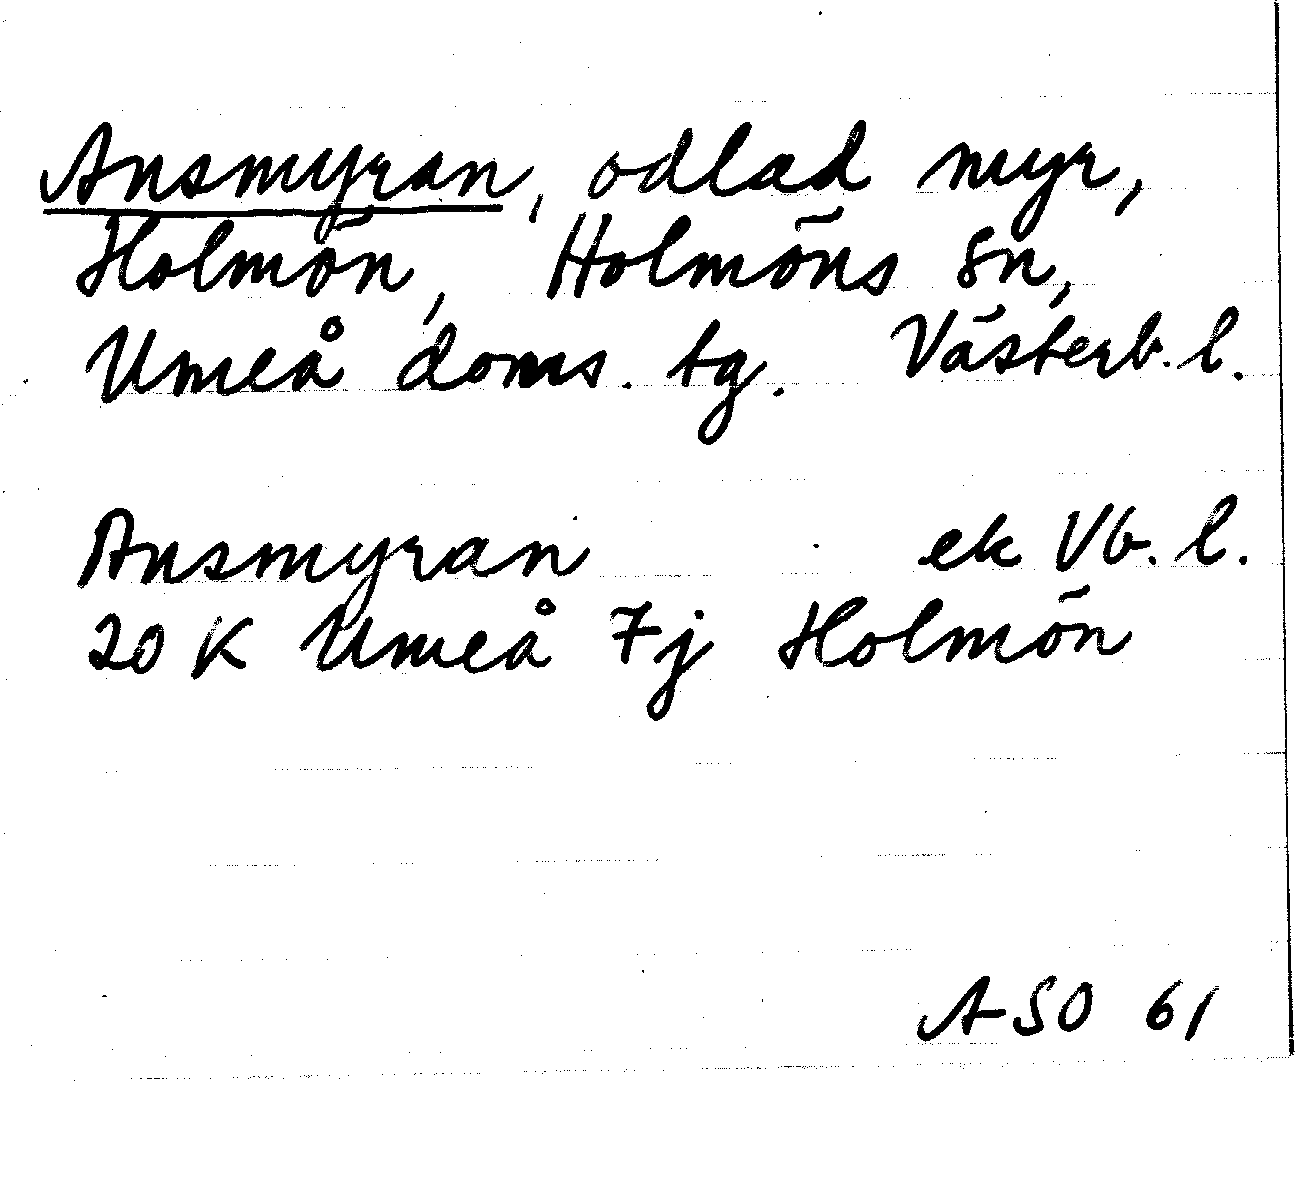 Ansmyran, odlad myr,
Holmön, Holmöns sn,
Umeå doms. tg. Västerb. l.
Ansmyran ek Vb. l.
20 K Umeå 7j Holmön
ASO 61